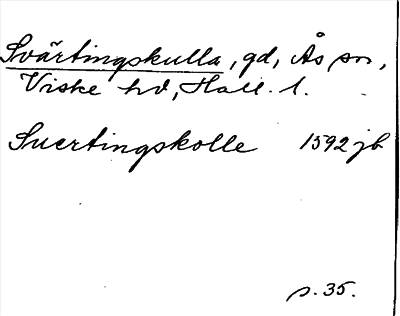 Svärtingskulla, gd, Ås sn,
Viske hd, Hall. l.
Suertingskolle 1592 jb
s. 35.